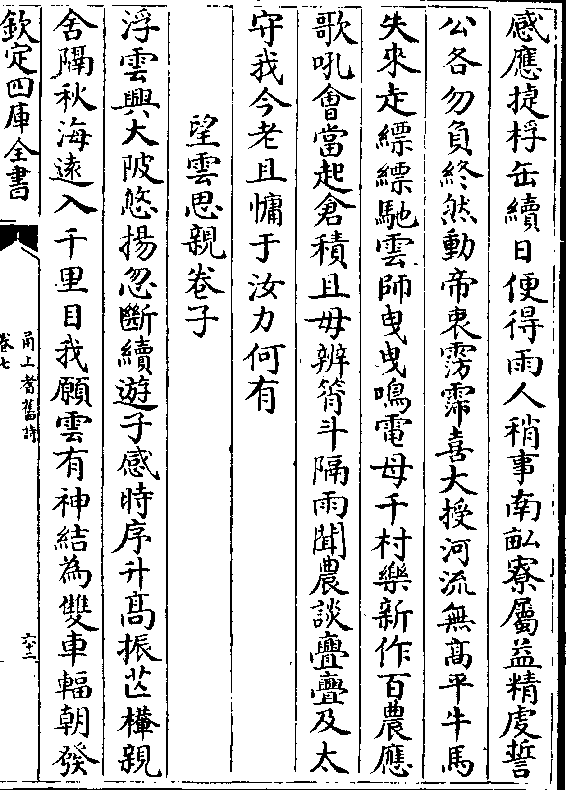 感應捷桴缶續日便得雨人稍事南畆寮屬益精虔誓
公各勿負終然動帝衷霶霈喜大授河流無高平牛馬
失來走縹縹馳雲師曳曳鳴電母千村樂新作百農應
歌吼會當起倉積且毋辨筲斗隔雨聞農談亹亹及太
守我今老且慵于汝力何有
望雲思親卷子
浮雲興大陂悠揚忽斷續遊子感時序升高振芒欅親
舍隔秋海遠入千里目我願雲有神結為雙車輻朝發
欽定四庫全書
甬上耆舊詩
卷七
六十二